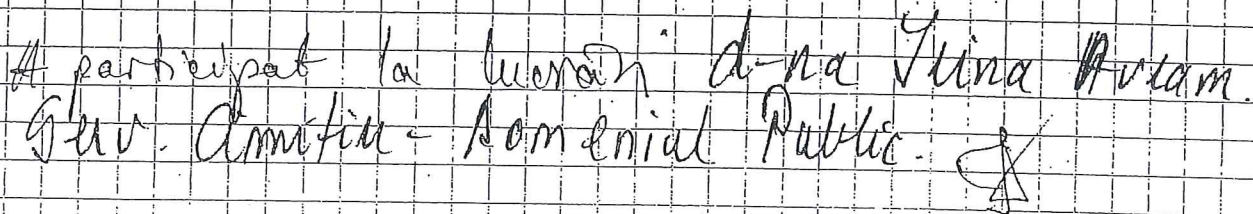 A participat la lucrări d-na Irina Avram.
Serv. Domenial Public.